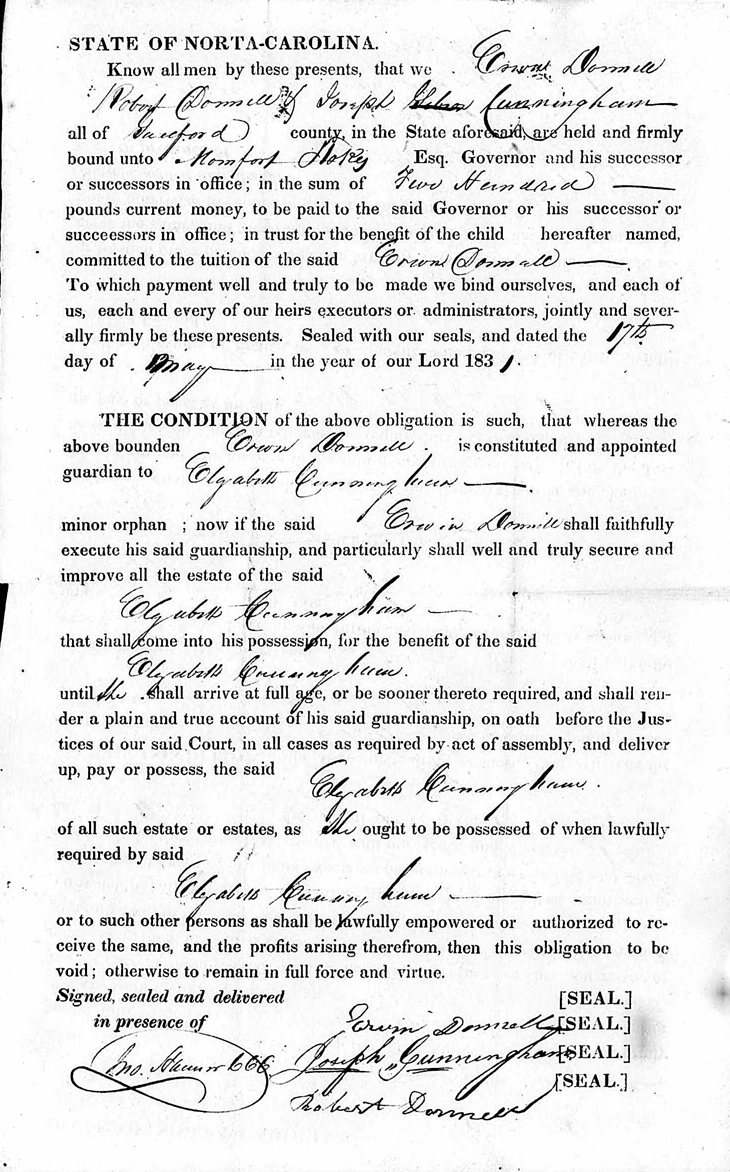 STATE OF NORTA-CAROLINA.
Know all men by these presents, that we Erwin Donnell
Robert Donnell & Joseph Cunningham
all of Guilford county, in the State aforesaid, are held and firmly
bound unto Momfort Stokes Esq. Governor and his successor
or successors in office; in the sum of Two Hundred
pounds current money, to be paid to the said Governor or his successor or
succeessors in office; in trust for the benefit of the child hereafter named,
committed to the tuition of the said Erwin Donnell
To which payment well and truly to be made we bind ourselves, and each of
us, each and every of our heirs executors or administrators, jointly and sever-
ally firmly be these presents. Sealed with our seals, and dated the 17th
day of May in the year of our Lord 1831.
THE CONDITION of the above obligation is such, that whereas the
above bounden Erwin Donnell. is constituted and appointed
guardian to Elizabeth Cunningham
minor orphan ; now if the said Erwin Donnell shall faithfully
execute his said guardianship, and particularly shall well and truly secure and
improve all the estate of the said
Elizabeth Cunningham
that shall come into his possession, for the benefit of the said
Elizabeth Cunningham.
until she shall arrive at full age, or be sooner thereto required, and shall ren-
der a plain and true account of his said guardianship, on oath before the Jus-
tices of our said Court, in all cases as required by act of assembly, and deliver
up, pay or possess, the said
Elizabeth Cunningham.
of all such estate or estates, as she ought to be possessed of when lawfully
required by said
Elizabeth Cunningham
or to such other persons as shall be lawfully empowered or authorized to re-
ceive the same, and the profits arising therefrom, then this obligation to be
void; otherwise to remain in full force and virtue.
Signed, sealed and delivered [SEAL.]
in presence of Erwin Donnell [SEAL.]
Jno. Hanner CCC. Joseph Cunningham [SEAL.]
[SEAL.]
Robert Donnell